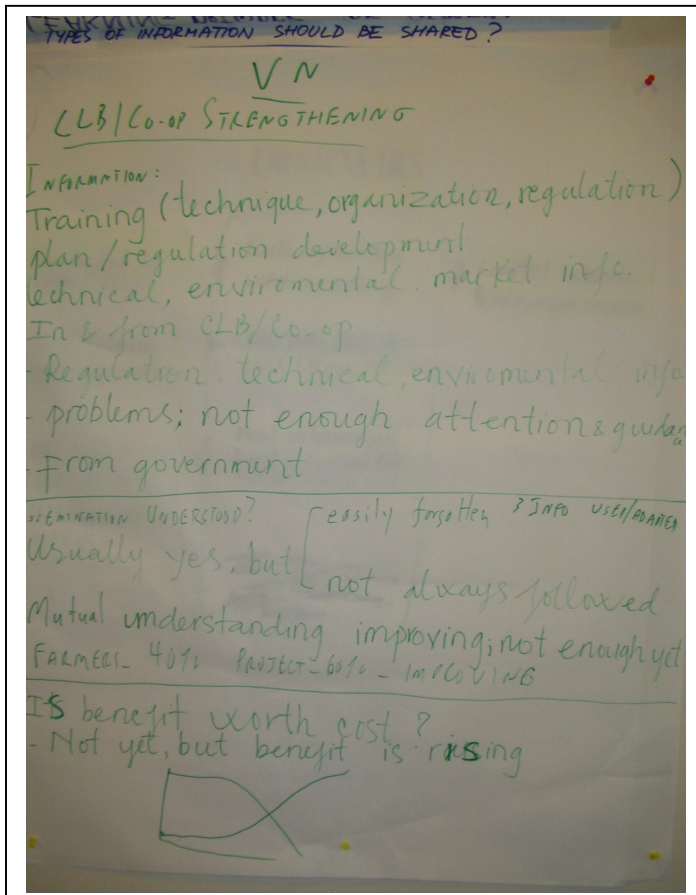 TYPES OF INFORMATION SHOULD BE SHARED?
VN
CLB/CO-OP STRENGTHENING
INFORMATION:
Training (technique, organization, regulation)
plan/regulation development
technical, enviromental, market info.
In & from CLB/Co.op
- Regulation, technical, enviromental info.
- problems; not enough attention & guidance
- From government
UNDERSTOOD? easily forgotten 3 INFO USED/ADAPTED
Usually yes, but
not always followed
Mutual understanding improving; not enough yet
FARMERS - 40% PROJECT - 60% - IMPROVING
IS benefit worth cost?
- Not yet, but benefit is rising